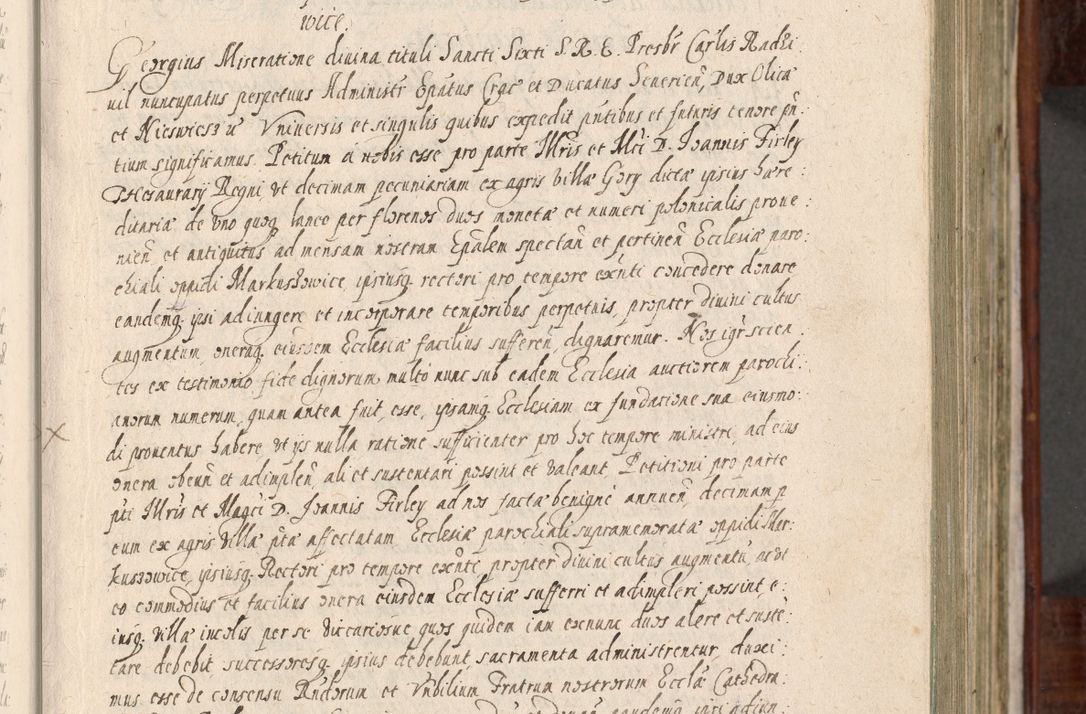 wice.
Georgius Miseratione divina tituli Sancti Sixti S. R. E. Presbr Carlis Radzi:
vil nuncupatus perpetuus Administr Epatus Crac et Ducatus Severien, Dux Olicæ
et Nieswiesz &c Universis et singulis quibus expedit pntibus et futuris tenore pn:
tium significamus. Petitum a nobis esse pro parte Illris et Mci D. Joannis Firley
Thesaurarij Regni, ut decimam pecuniariam ex agris villæ Gory dictæ ipsius hære:
ditariæ de uno quoq. laneo per florenos duos monetæ et numeri polonicalis prove:
nien, et antiquitus ad mensam nostram Epalem spectan et pertinen Ecclesiæ paro:
chiali oppidi Markuszowice, ipsiusq. rectori pro tempore exnti concedere donare
eandemq. ipsi adiungere et incorporare temporibus perpetuis, propter divini cultus
augmentum, oneraq. eiusdem Ecclesiæ facilius sufferen, dignaremur. Nos igr scien:
tes ex testimonio fide dignorum multo nunc sub eadem Ecclesia auctiorem parochi:
anorum numerum, quam antea fuit, esse, ipsamq. Ecclesiam ex fundatione sua eiusmo:
di proventus habere, ut ijs nulla ratione sufficienter pro hoc tempore ministri, ad eius
onera obeun et adimplen, ali et sustentari possint et valeant, Petitioni pro parte
pti Illris et Magci D. Joannis Firley ad nos factæ benigne annuen, decimam p
eum ex agris villæ ptæ affectatam Ecclesiæ parochiali supramemoratæ oppidi Mar:
kuszowice, ipsiusq. Rectori pro tempore exnti propter divini cultus augmentu, ac ut
eo commodius et facilius onera eiusdem Ecclesiæ sufferri et adimpleri possint, e:
iusq. villæ incolis per se vicariosve quos quidem iam exnunc duos alere et suste:
tare debebit, successoresq. ipsius debebunt, sacramenta administrentur, duxi:
mus esse de consensu Rndorum et Vnbilium Fratrum nostrorum Ecclæ Cathedra: